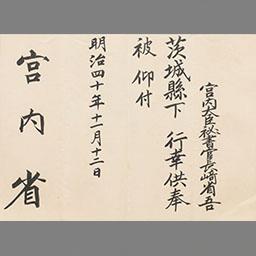 宮内大臣秘書官長崎省吾
茨城縣下 行幸供奉
被 仰付
明治四十年十一月十二日
宮内省